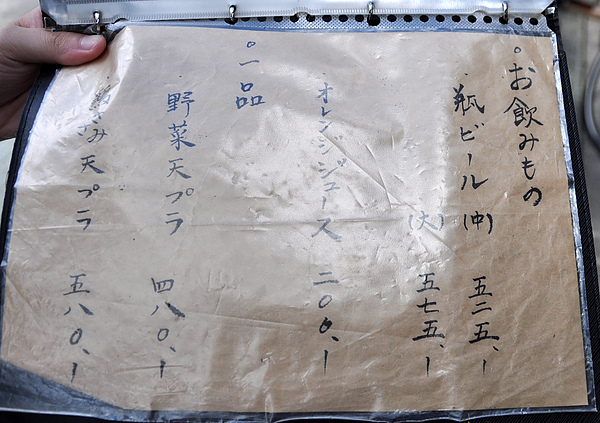 ○お飲みもの
瓶ビール (中) 五二五、ー
(大) 五七五、ー
オレンジジュース 二〇〇、ー
○一品
野菜天プラ 四八〇、ー
天プラ 五八〇、ー